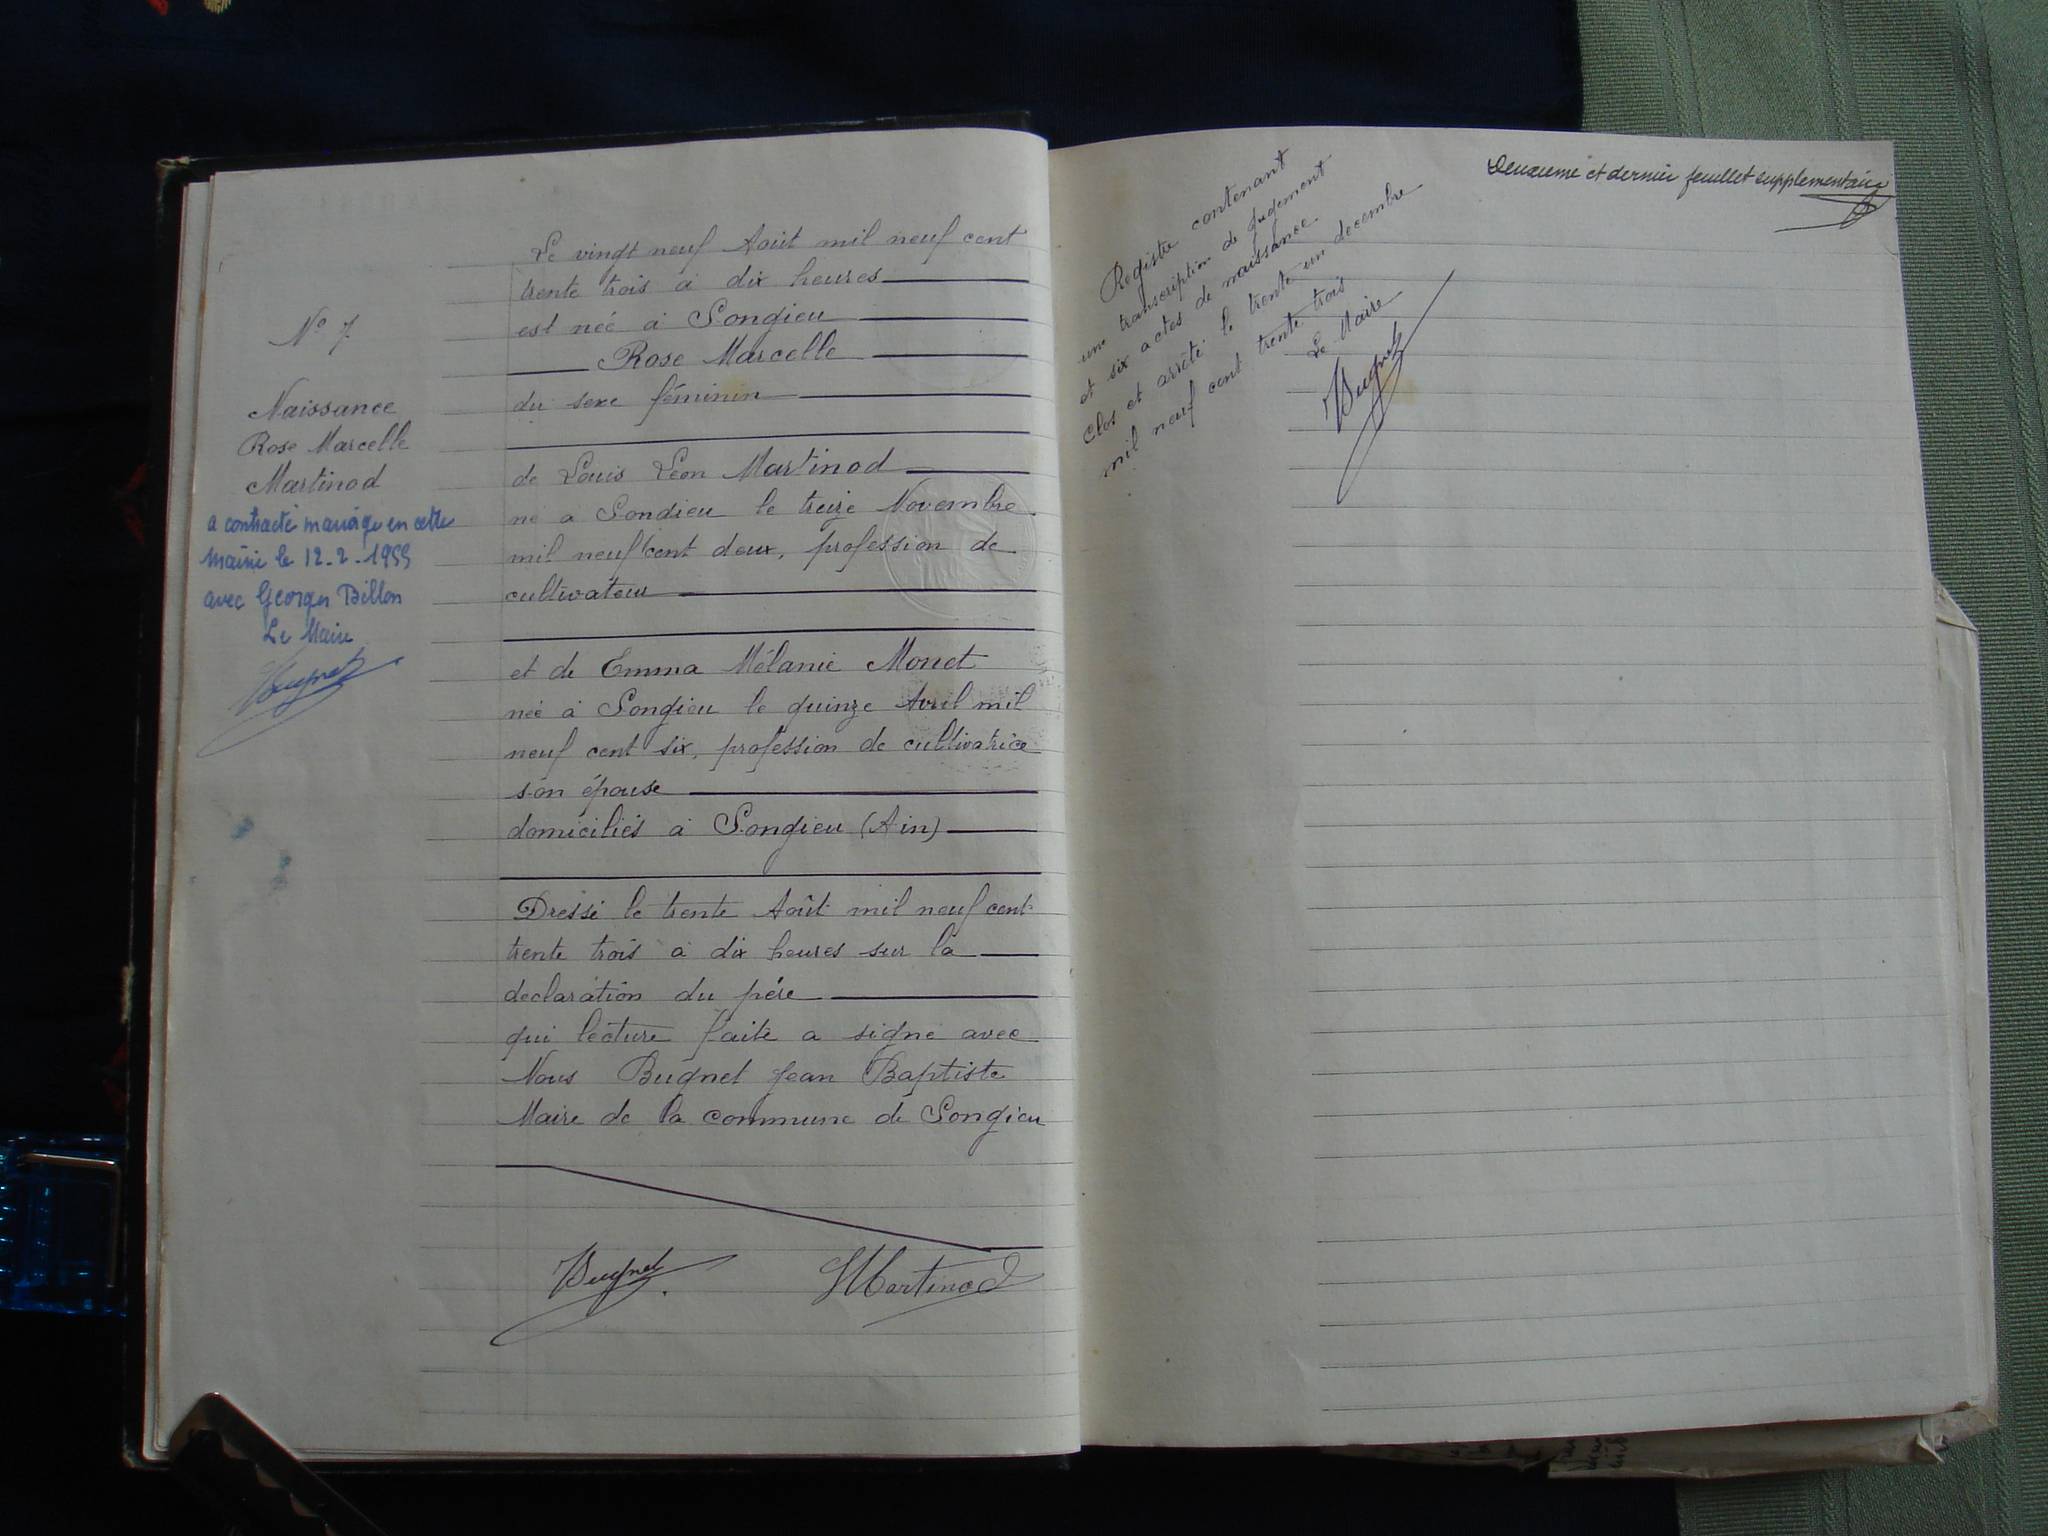 N° 7
Naissance
Rose Marcelle
Martinod
a contracté mariage en cette
mairie le 12-2-1955
avec Georges Billon
Le Maire
Bugnet
Le vingt neuf Août mil neuf cent
trente trois à dix heures
est née à Songieu
Rose Marcelle
du sexe féminin
de Louis Léon Martinod
né à Songieu le treize Novembre
mil neuf cent deux, profession de
cultivateur
et de Emma Mélanie Monet
née à Songieu le quinze Avril mil
neuf cent six, profession de cultivatrice
son épouse
domiciliés à Songieu (Ain)
Dressé le trente Août mil neuf cent
trente trois à dix heures sur la
declaration du père
qui lecture faite a signé avec
Nous Bugnet Jean Baptiste
Maire de la commune de Songieu
Bugnet Martinod
Deuxième et dernier feuillet supplémentaire
Registre contenant
une transcription de Jugement
et six actes de naissance
Clos et arrêté le trente un decembre
mil neuf cent trente trois
Le Maire
Bugnet